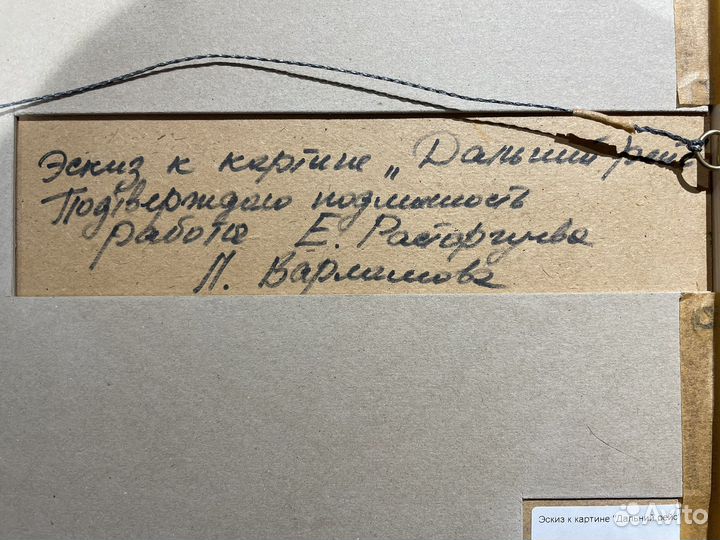 Эскиз к картине „Дальний рейс
Подтверждаю подлинность
работа Е. Расторгуева
Л. Варламова
Эскиз к картине "Дальний рейс
Avito